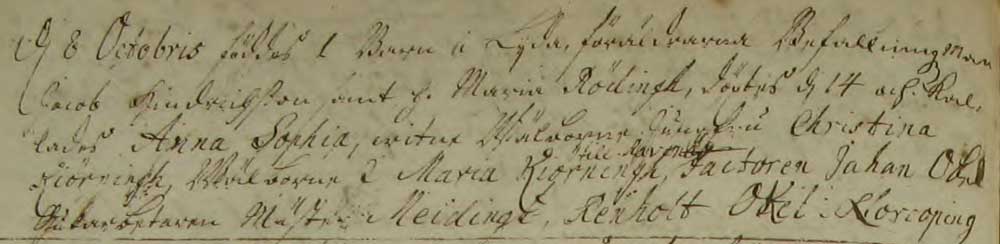 8 Octobris föddes 1 Barn i Lyda, föräldrarna Befallningzman
Jacob Hindrichsson samt h. Maria Rödingh, döptes d 14 och Kal-
lades Anna Sophia, witne Wälborne Jungfru Christina
Kiörningh, Wälborne Maria Kiörningh, Factoren Johan
Mäster Meidingz, Renholt Otkil i Norcoping